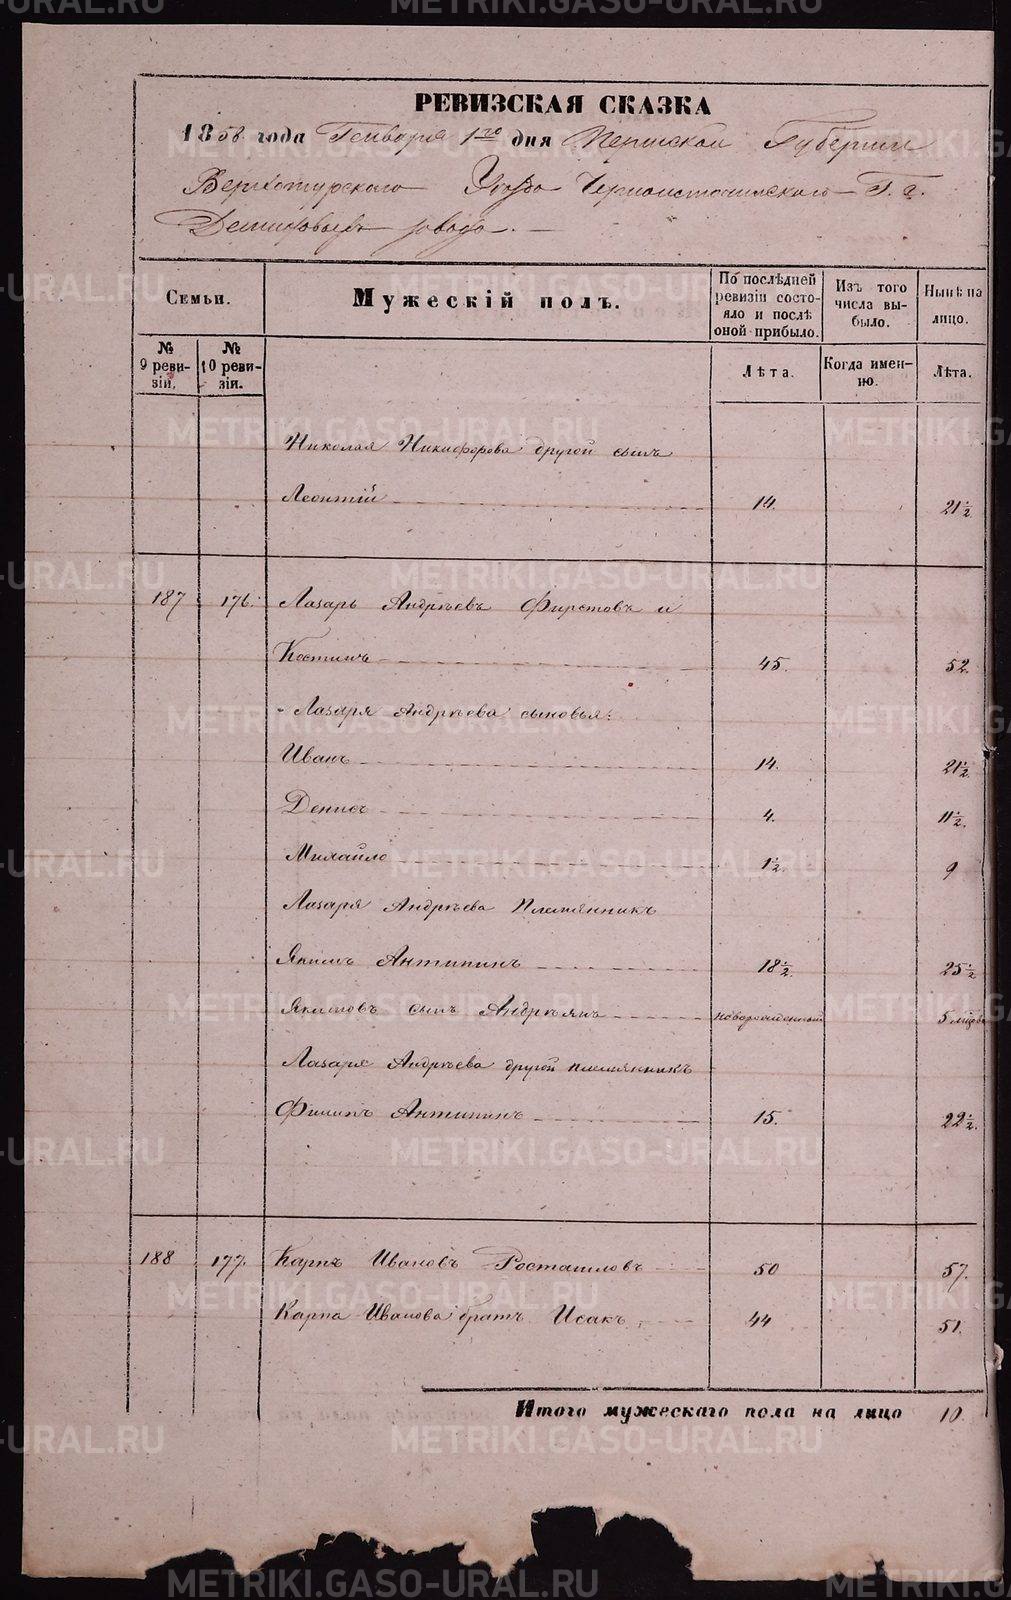 РЕВИЗСКАЯ СКАЗКА
1858 года Генваря 1го дня Пермской Губернии
Верхотурскаго Уезда Черноисточинскаго Г.г.
Демидовыхъ завода.
Семьи.
Мужескій полъ.
По послѣдней ревизіи состояло и послѣ оной прибыло.
Изъ того числа выбыло.
Нынѣ на лицо.
№ 9 ревизіи.
№ 10 ревизіи.
Лѣта.
Когда именно.
Лѣта.
Николая Никифорова другой сынъ
Леонтій 14. 21½
187 176. Лазарь Андрѣевъ Фирстовъ и
Костинъ 45. 52.
Лазаря Андрѣева сыновья:
Иванъ 14. 21½
Денисъ 4. 11½.
Михайло 1½. 9
Лазаря Андрѣева племянникъ
Якимъ Антипинъ 18½. 25½
Якимовъ сынъ Андрѣянъ новорожденный 5 мѣсяц
Лазаря Андрѣева другой племянникъ
Филипъ Антипинъ 15. 22½.
188 177. Карпъ Ивановъ 50 57.
Карпа Иванова братъ Исакъ 44 51.
Итого мужескаго пола на лицо 10.
METRIKI.GASO-URAL.RU